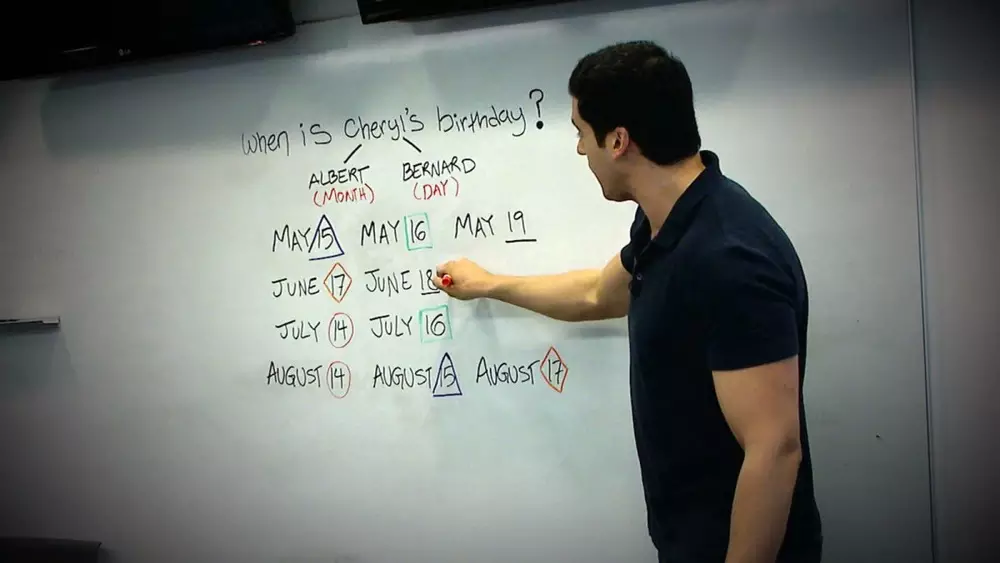 When is Cheryl's birthday?
ALBERT BERNARD
(MONTH) (DAY)
MAY 15 MAY 16 MAY 19
JUNE 17 JUNE 18
JULY 14 JULY 16
AUGUST 14 AUGUST 15 AUGUST 17